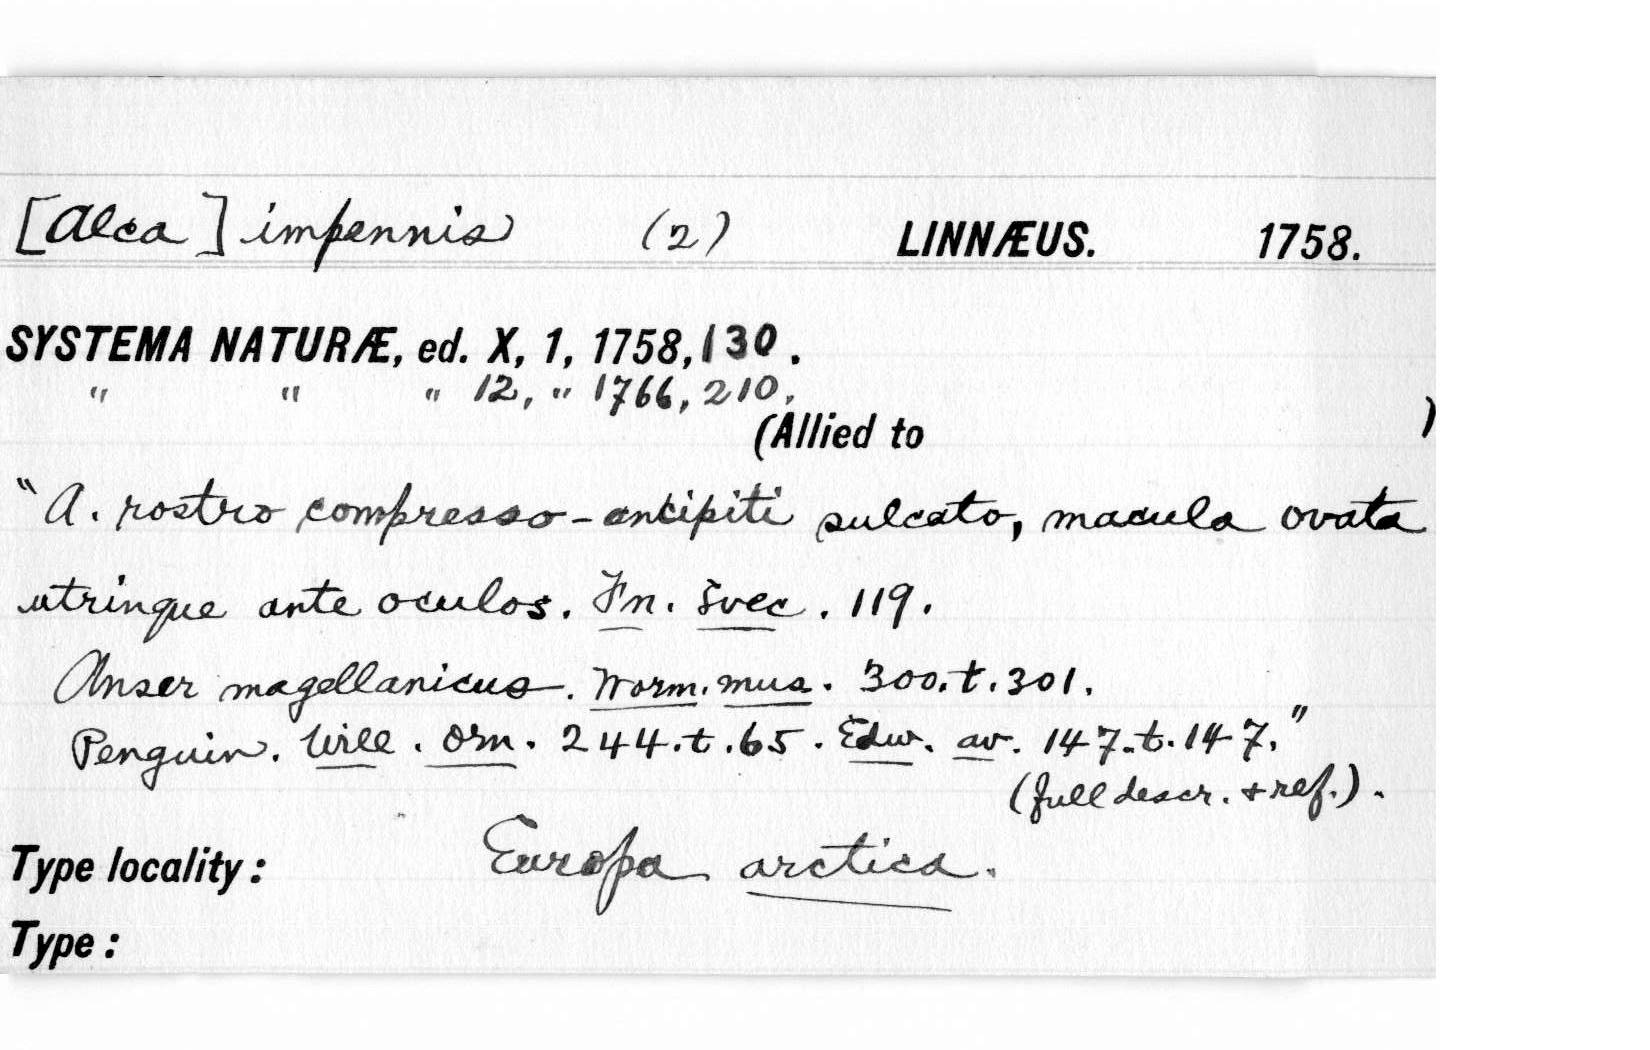 [Alca] impennis (2) LINNÆUS. 1758.
SYSTEMA NATURÆ, ed. X, 1, 1758, 130.
" " " 12, " 1766, 210.
(Allied to )
"A. rostro compresso-ancipiti sulcato, macula ovata
utrinque ante oculos. Fn. Svec. 119.
Anser magellanicus. Worm. mus. 300. t. 301.
Penguin. Will. Orn. 244. t. 65. Edw. av. 147. t. 147."
(full descr. & ref.).
Type locality: Europa arctica.
Type: